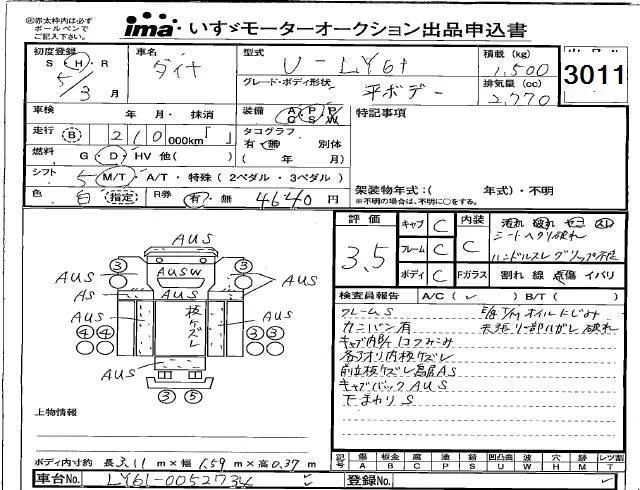 ㊟赤太枠内は必ず
ボールペンで
ご記入下さい。
ima いすゞモーターオークション出品申込書
初度登録 車名 型式 積載(kg)
S・H・R ダイナ U-LY61 1,500
5/3月 グレード・ボディ形状 平ボデー 排気量(cc) 2,770
3011
車検 年 月・抹消 装備 A/C P/S P/W 特記事項
走行 B 210 000km「 」 タコグラフ
有・無 別体
燃料 G・D・HV 他( ) ( 年 月)
シフト 5 M/T・A/T・特殊(2ペダル・3ペダル)
架装物年式:( 年式)・不明
色 白 指定 R券 有・無 4640円 ※不明の場合は、不明に○をする。
評価 3.5
キャブ C 内装 C 汚れ 破れ コゲ スレ
シートヘタリ破れ
フレーム C ハンドルスレ グリップ
ボディ C Fガラス 割れ 線 点傷 イバリ
検査員報告 A/C( ✓ ) B/T( )
フレームS E/g T/M オイルにじみ
カンバン有 天張り一部ハガレ 破れ
キャブ内 凹コミ
アオリ内板ケズレ
前立板ケズレ 鳥居AS
キャブバックAUS
下まわりS
AUS
③ ③
AUS AUSW AUS
AS AUS
AUS 板ケズレ AUS
④④ ③③
AUS
③ ⑤
上物情報
ボディ内寸約 長3.11m×幅1.59m×高0.37m
記号 傷 板金 腐 塗 錆 凹凸曲 波 穴 跡 レツ割
A B C P S U W H M T
車台No. LY61-0052734 登録No.